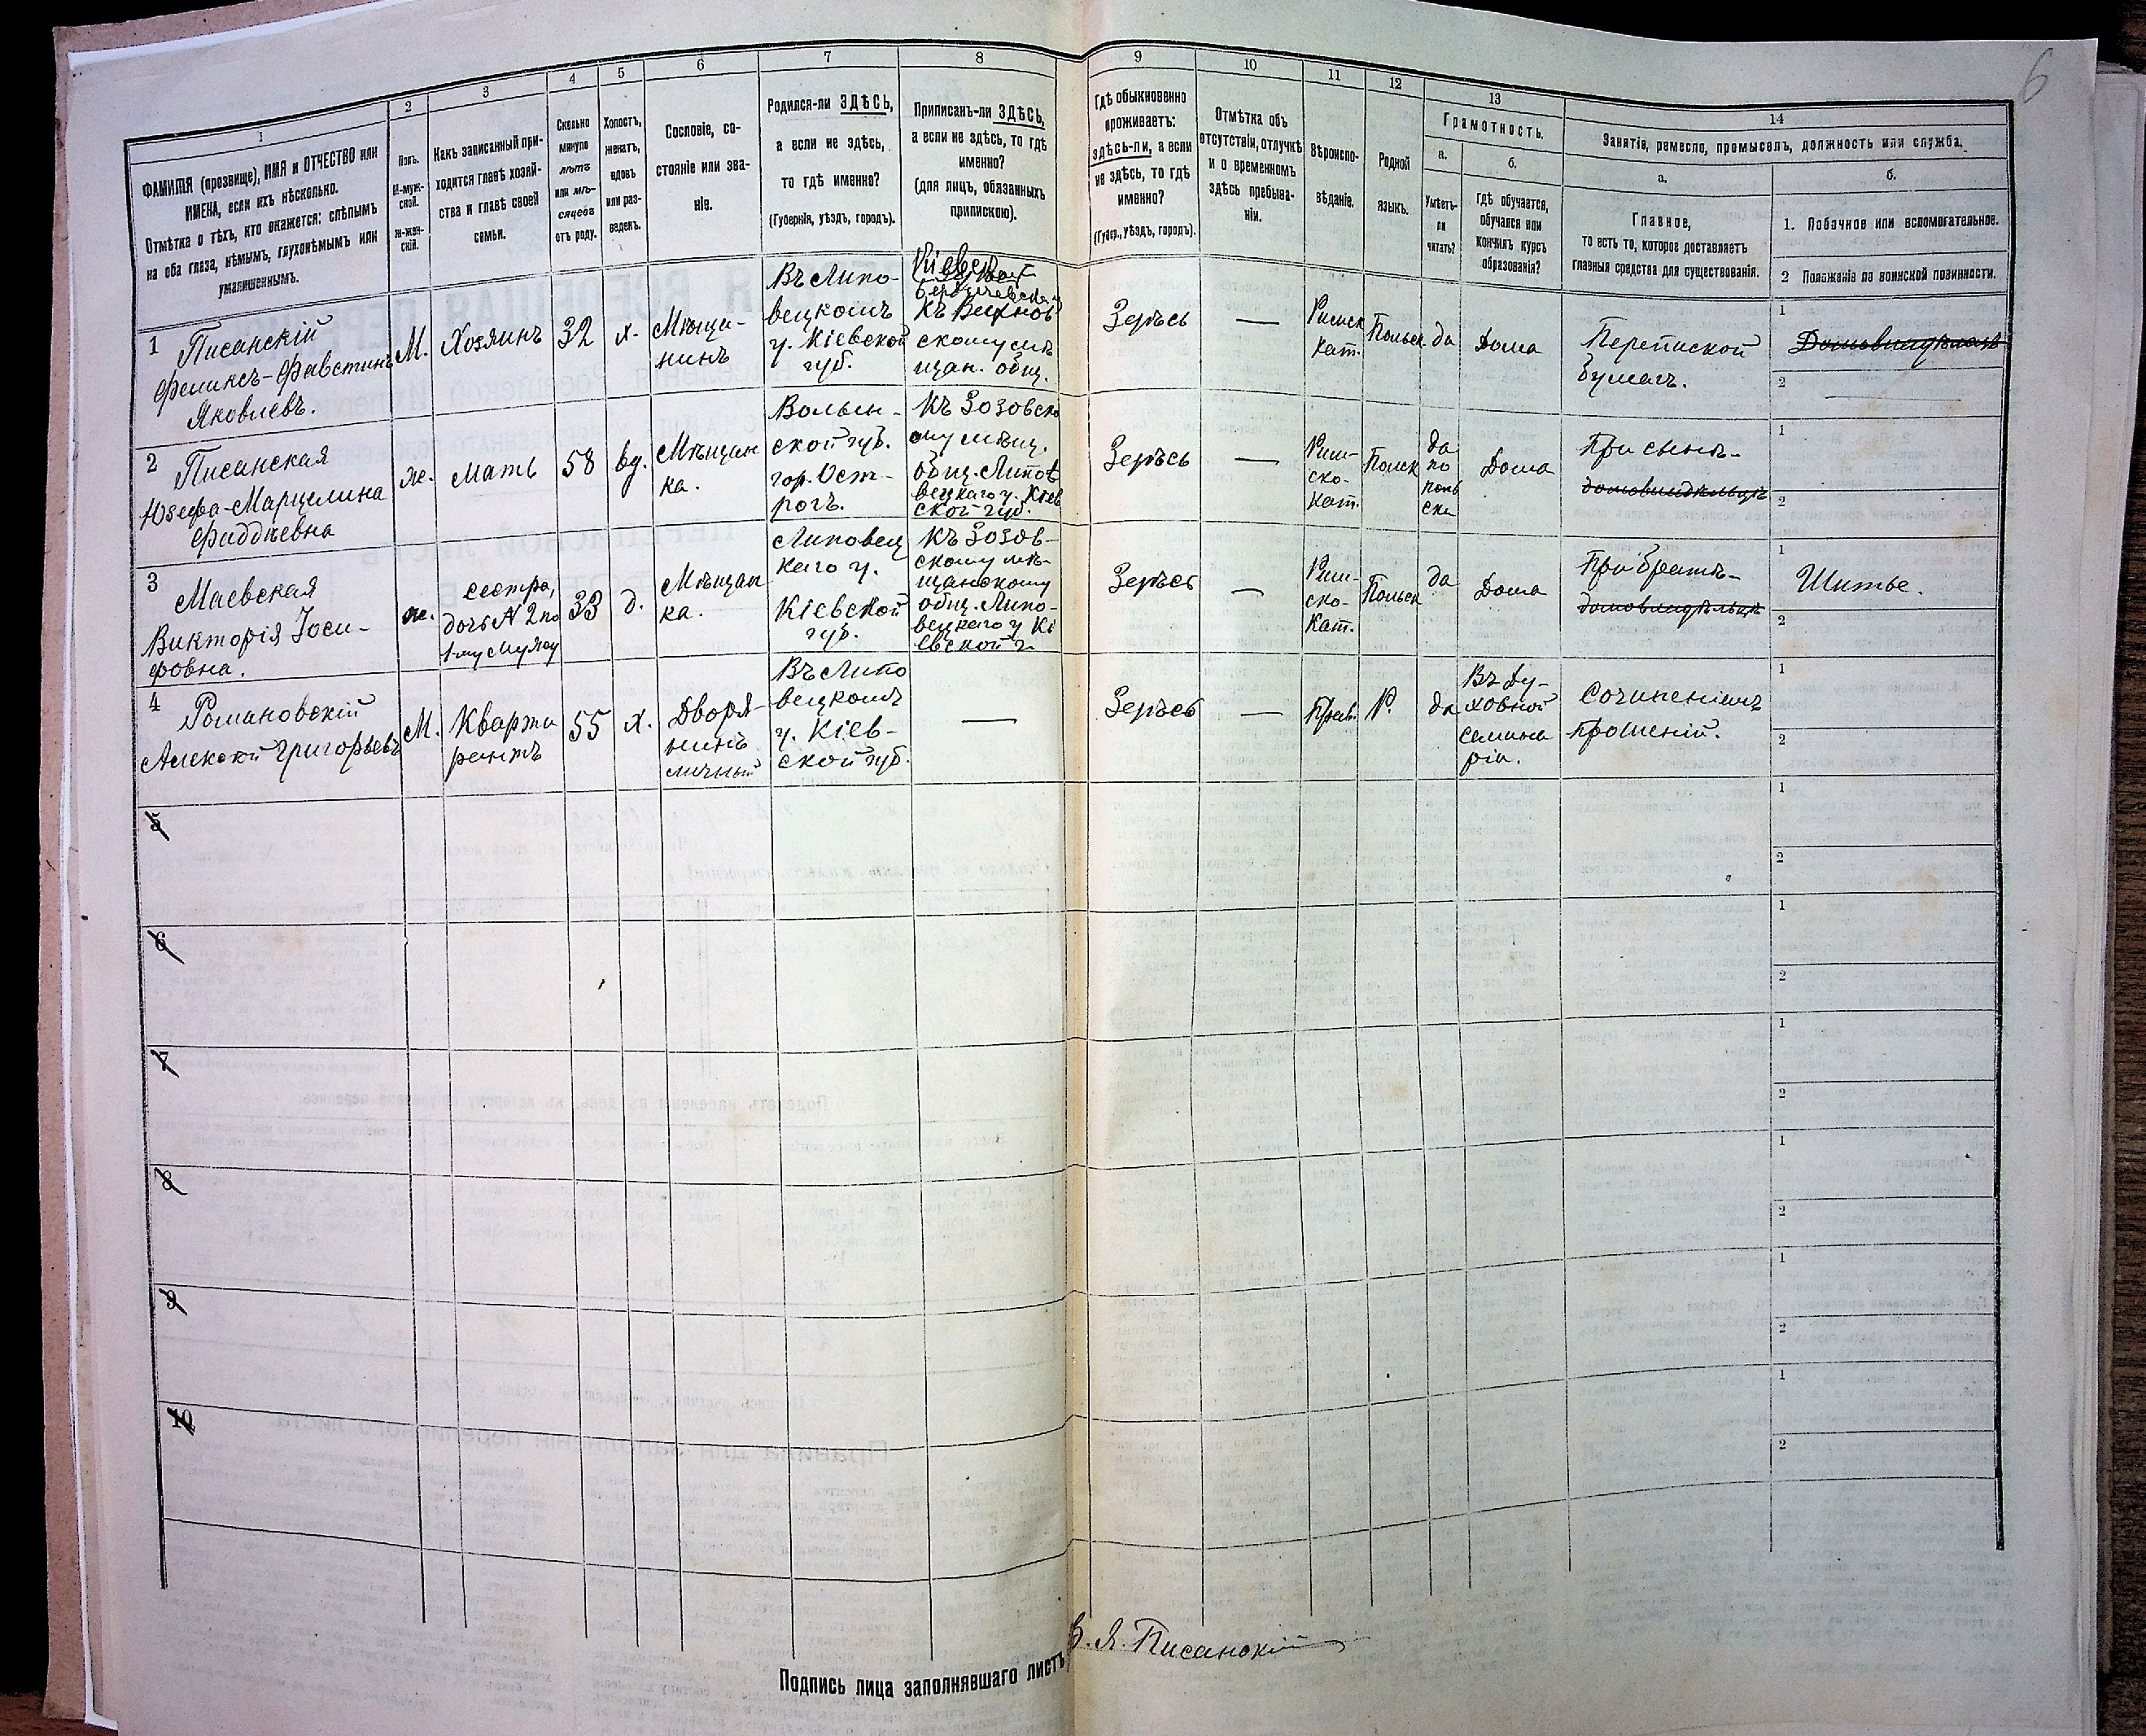 6
1
ФАМИЛІЯ (прозвище), ИМЯ и ОТЧЕСТВО или
ИМЕНА, если ихъ нѣсколько.
Отмѣтка о тѣхъ, кто окажется: слѣпымъ
на оба глаза, нѣмымъ, глухонѣмымъ или
умалишеннымъ.
2
Полъ.
М-муж-
ской.
ж-жен-
скій.
3
Какъ записанный при-
ходится главѣ хозяй-
ства и главѣ своей
семьи.
4
Сколько
минуло
лѣтъ
или мѣ-
сяцевъ
отъ роду.
5
Холостъ,
женатъ,
вдовъ
или раз-
веденъ.
6
Сословіе, со-
стояніе или зва-
ніе.
7
Родился-ли ЗДѢСЬ,
а если не здѣсь,
то гдѣ именно?
(Губернія, уѣздъ, городъ).
8
Приписанъ-ли ЗДѢСЬ,
а если не здѣсь, то гдѣ
именно?
(для лицъ, обязанныхъ
припискою).
9
Гдѣ обыкновенно
проживаетъ:
здѣсь-ли, а если
не здѣсь, то гдѣ
именно?
(Губер., уѣздъ, городъ).
10
Отмѣтка объ
отсутствіи, отлучкѣ
и о временномъ
здѣсь пребыва-
ніи.
11
Вѣроиспо-
вѣданіе.
12
Родной
языкъ.
13
Грамотность.
а.
Умѣетъ-
ли
читать?
б.
Гдѣ обучается,
обучался или
кончилъ курсъ
образованія?
14
Занятіе, ремесло, промыселъ, должность или служба.
а.
Главное,
то есть то, которое доставляетъ
главныя средства для существованія.
б.
1. Побочное или вспомогательное.
2 Положеніе по воинской повинности.
1
Писанскій
Феликсъ-Фавстинъ
Яковлевъ.
М.
Хозяинъ
32
х.
Мѣща-
нинъ
Въ Липо-
вецкомъ
у. Кіевской
губ.
Къ Вахнов
скому мѣ
щан. общ.
Здѣсь
—
Римск
Кат.
Польск
да
Дома
Перепиской
бумагъ.
1
Домовладѣлецъ
2
2
Писанская
Юзефа-Марцелина
Фаддѣевна
ж.
Мать
58
вд.
Мѣщан
ка.
Волын-
ской губ.
гор. Ост-
рогъ.
Къ Зозовск
ому мѣщ.
общ. Липо
вецкаго у. Кіев
ской губ.
Здѣсь
—
Рим-
ско-
Кат.
Польск
да
по
поль
ски
Дома
При сынѣ-
домовладѣльцѣ
1
2
3
Маевская
Викторія Іоси-
фовна.
ж.
сестра,
дочь № 2 по
1-му мужу
33
д.
Мѣщан
ка.
Липовец
каго у.
Кіевской
губ.
Къ Зозов-
скому мѣ-
щанскому
общ. Липо-
вецкаго у Кі
евской г.
Здѣсь
—
Рим-
ско-
Кат.
Польск
да
Дома
При братѣ-
домовладѣльцѣ
1
Шитье.
2
4
Романовскій
Алексѣй Григорьевъ
М.
Кварти
рантъ
55
х.
Дворя-
нинъ
личный
Въ Липо
вецкомъ
у. Кіев-
ской губ.
—
Здѣсь
—
Прав.
Р.
да
Въ Ду-
ховной
семина
ріи.
Сочиненіемъ
прошеній.
1
2
5
1
2
6
1
2
7
1
2
8
1
2
9
1
2
10
1
2
Подпись лица заполнявшаго листъ
Ф. Я. Писанскій